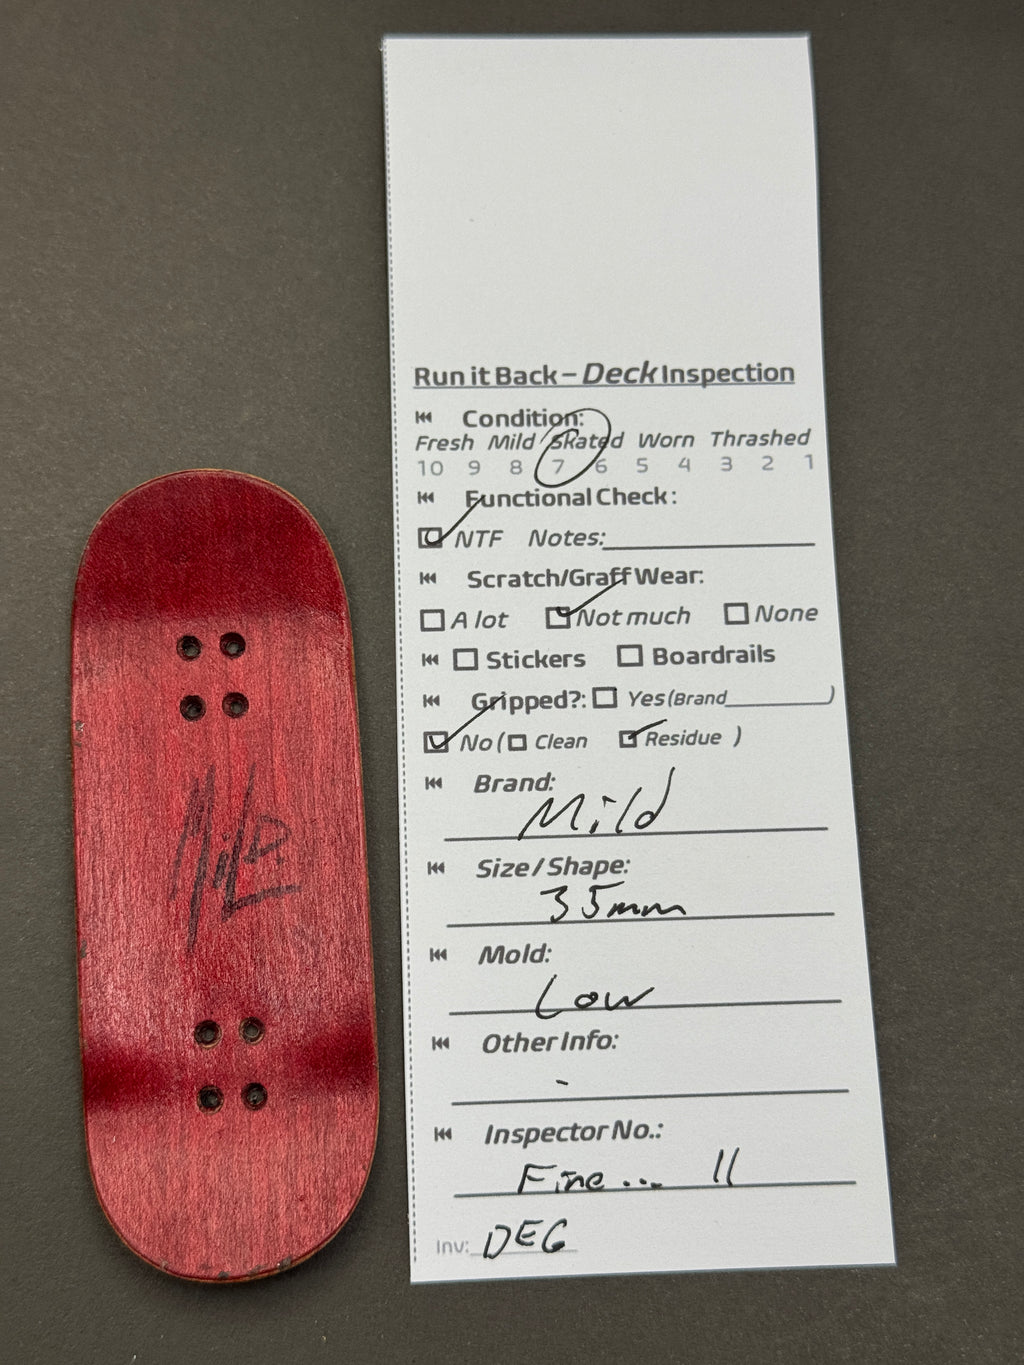 Run it Back – Deck Inspection
Condition:
Fresh Mild Skated Worn Thrashed
10 9 8 7 6 5 4 3 2 1
Functional Check:
NTF Notes:
Scratch/Graff Wear:
A lot Not much None
Stickers Boardrails
Gripped?: Yes (Brand )
No ( Clean Residue )
Brand:
Mild
Size / Shape:
35mm
Mold:
Low
Other Info:
-
Inspector No.:
Fine... 11
Inv: DEG
Mild.